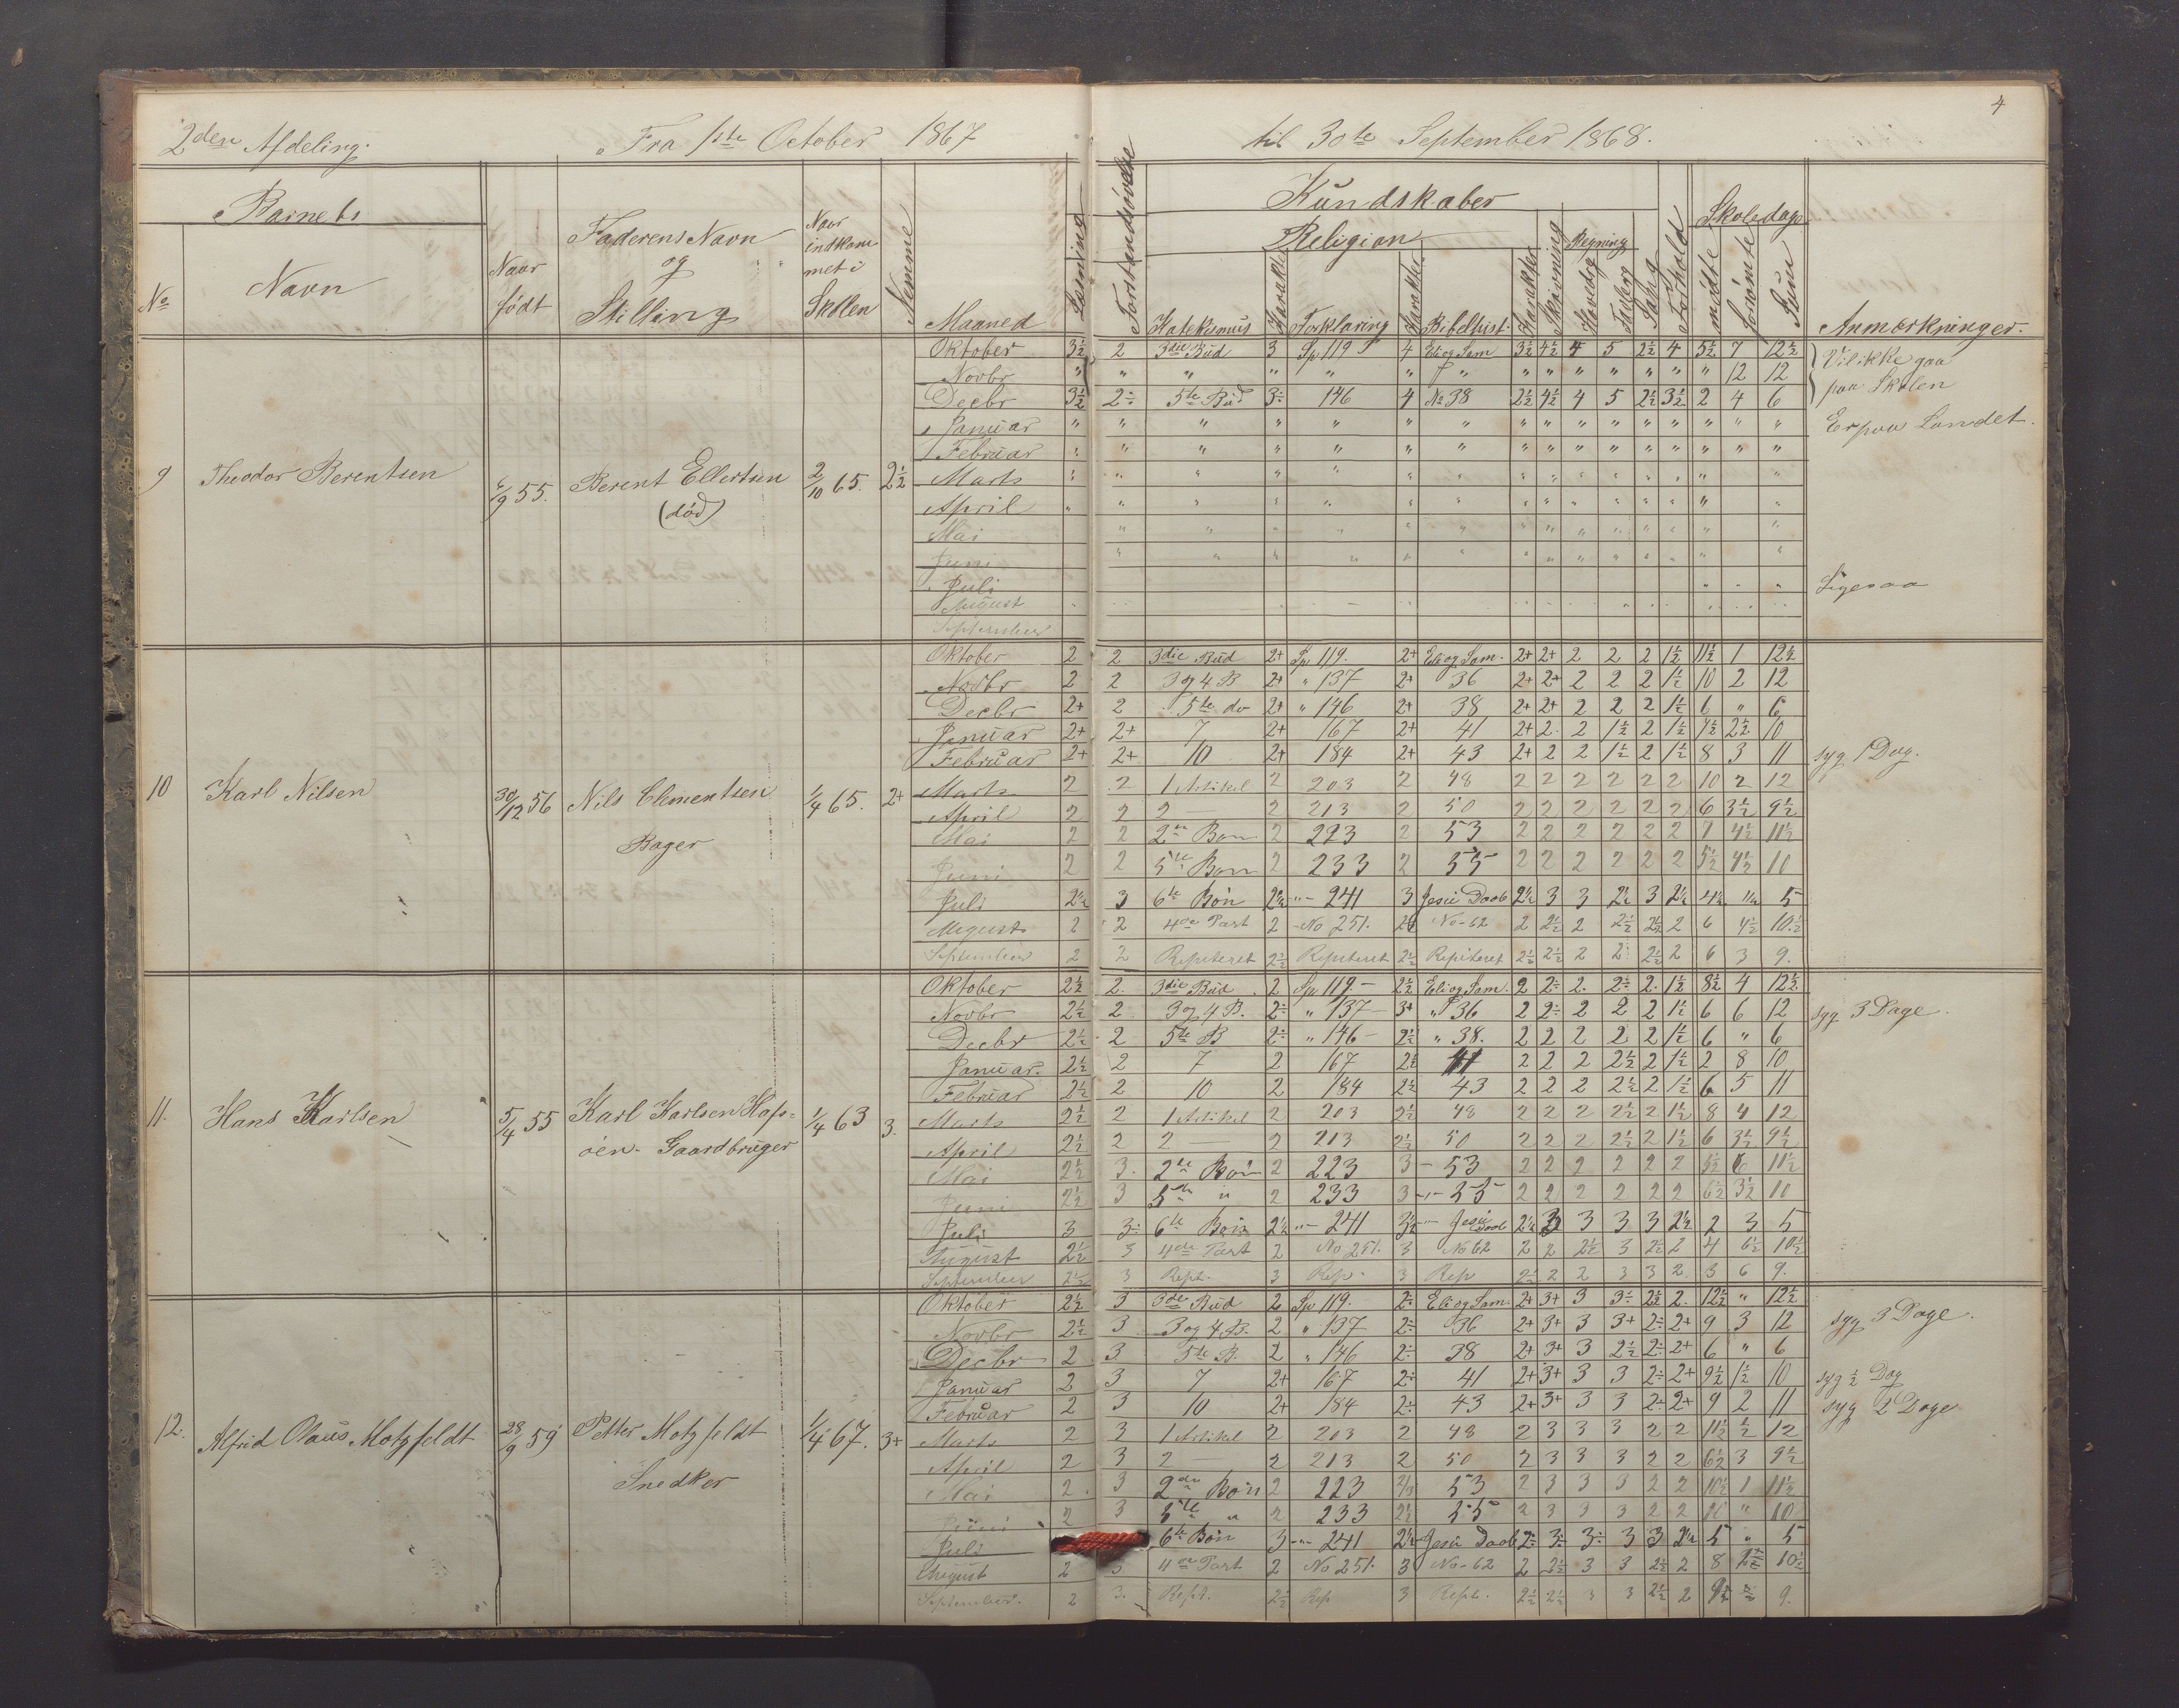 4
2den Afdeling. Fra 1ste October 1867 til 30te September 1868.
Barnets
No Navn Naar født Faderens Navn og Stilling Naar indkommet i Skolen Nemme Maaned Læsning
Forstandsøvelse Kundskaber
Religion
Katekismus Karakter Forklaring Karakter Bibelhist. Karakter Skrivning Regning Hovedrg Tavlerg Sang Forhold Skoledage mødte forsømte Sum Anmærkninger.
9 Theodor Berentsen 55. Berent Ellertsen (død) 2/10 65. 2½
Oktober 3½ 2 3die Bud 3 Sp 119 4 Eli og Sam 3½ 4½ 4 5 2½ 4 5½ 7 12½ Vil ikke gaa
Novbr " " " " " " " " " " " " " " 12 12 paa Skolen
Decbr 3½ 2÷ 5te Bud 3÷ 146 4 No 38 2½ 4½ 4 5 2½ 3½ 2 4 6
Januar " " " " " " " " " " " " " " " " Er paa Landet.
Februar " " " " " " " " " " " " " " " "
Marts
April
Mai
Juni
Juli Ligesaa
August
September
10 Karl Nilsen 30/12 56 Nils Clementsen Bager 1/4 65. 2+
Oktober 2 2 3die Bud 2+ Sp 119. 2+ Eli og Sam. 2+ 2+ 2 2 2 1½ 11½ 1 12½
Novbr 2 2 3 og 4 B 2+ " 137 2+ 36 2+ 2+ 2 2 2 1½ 10 2 12
Decbr 2+ 2 5te do 2+ " 146 2+ 38 2+ 2+ 2 2 2 1½ 6 " 6
Januar 2+ 2+ 7 2+ 167 2+ 41 2+ 2 2 1½ 2 1½ 7½ 2½ 10
Februar 2+ 2+ 10 2+ 184 2+ 43 2+ 2 2 1½ 2 1½ 8 3 11 syg 1 Dag.
Marts 2 2 1 Artikel 2 203 2 48 2 2 2 2 2 2 10 2 12
April 2 2 2 — 2 213 2 50 2 2 2 2 2 2 6 3½ 9½
Mai 2 2 2den Bøn 2 223 2 53 2 2 2 2 2 2 7 4½ 11½
Juni 2 2 5te Bøn 2 233 2 55 2 2 2 2 2 2 5½ 4½ 10
Juli 2½ 3 6te Bøn 2½ "- 241 3 Jesu Daab 2½ 3 3 2½ 3 2½ 4½ ½ 5
August 2 2 4de Part 2 No 251. No-62 2 2½ 2 2½ 2½ 2 6 4½ 10½
September 2 2 Repeteret 2½ Repeteret 2½ Repiteret 2½ 2½ 2 2 2½ 2 6 3 9.
11. Hans Karlsen 5/4 55 Karl Karlsen Hafsøen. Gaardbruger 1/4 63 3.
Oktober 2½ 2. 3die Bud 2 Sp 119.- 2½ Eli og Sam. 2 2÷ 2. 2÷ 2. 1½ 8½ 4 12½
Novbr 2½ 2 3 og 4 B. 2÷ " 137- 3+ " 36 2 2÷ 2 2 2 1½ 6 6 12 syg 3 Dage.
Decbr 2½ 2 5te B 2÷ " 146- 2½ " 38. 2 2 2 2 2 1½ 6 " 6
Januar. 2½ 2 7 2 167 2½ 41 2 2 2 2½ 2 1½ 2 8 10
Februar 2½ 2 10 2 184 2½ 43 2 2 2 2½ 2 1½ 6 5 11
Marts 2½ 2 1 Artikel 2 203 2½ 48 2 2 2 2½ 2 1½ 8 4 12
April 2½ 2 2 2 213 2½ 50 2 2 2 2½ 2 1½ 6 3½ 9½
Mai 2½ 3. 2den Bøn 2 223 3 - 53 2 2 2 2 2 2 5½ 6 11½
Juni 2½ 3 5te " 2 233 3 -"- 55 2 2 2 2 2 2 6½ 3½ 10
Juli 3 3÷ 6te Bøn 2½ "- 241 3½ "- Jesu Daab 2½ 3 3 3 3 2½ 2 3 5
August 2½ 3 4de Part 2 No 251. 3 No 62 2 2 2½ 3 2½ 2 4 6½ 10½
September 2½ 3 Rept. 3 Rep. 3 Rep 2½ 2 2 3 3 2. 3 6 9.
12. Alfrid Olaus Motzfeldt 28/9 59 Petter Motzfeldt Snedker 1/4 67. 3+
Oktober 2½ 3 3die Bud 2 Sp 119. 2÷ Eli og Sam. 2+ 3+ 3 3÷ 2½ 2. 12½ " 12½ syg 3 Dage.
Novbr 2½ 3 3 og 4 B. 2 " 137 2÷ 36 2+ 3+ 3 3+ 2÷ 2+ 9 3 12
Decbr 2 3 5te B. 2 " 146 2÷ 38 2+ 3+ 3 2½ 2÷ 2+ 6 " 6
Januar 2 3 7 2+ 167 2÷ 41 2+ 3+ 3 3 2÷ 2+ 9½ ½ 10 syg ½ Dag
Februar 2 3 10 2+ 184 2÷ 43 2+ 3+ 3 3 2÷ 2+ 9 2 11 syg 2 Dage
Marts 2 3 1 Artikel 2 203 2 48 2 3 3 3 2 2 11½ ½ 12
April 2 3 2 — 2 213 2 50 2 3 3 3 2 2 6½ 3 9½
Mai 2 3 2den Bøn 2 223 53 2 3 3 3 2 2 10½ 1 11½
Juni 2 3 5te " 2 233 2½ 55 2 3 3 3 2 2 10 " 10
Juli 6te Bøn 3 -"- 241 2½ Jesu Daab 2÷ 3÷ 3÷ 3 3 2½ 5 " 5
August 2 3 4de Part 2 No 251. 3 No-62 2 2½ 3 3 2½ 2 8 2½ 10½
September. 2 3. Rept. 2½ Rep 3 Rept. 2½ 2½ 3 3 2½ 2 9.